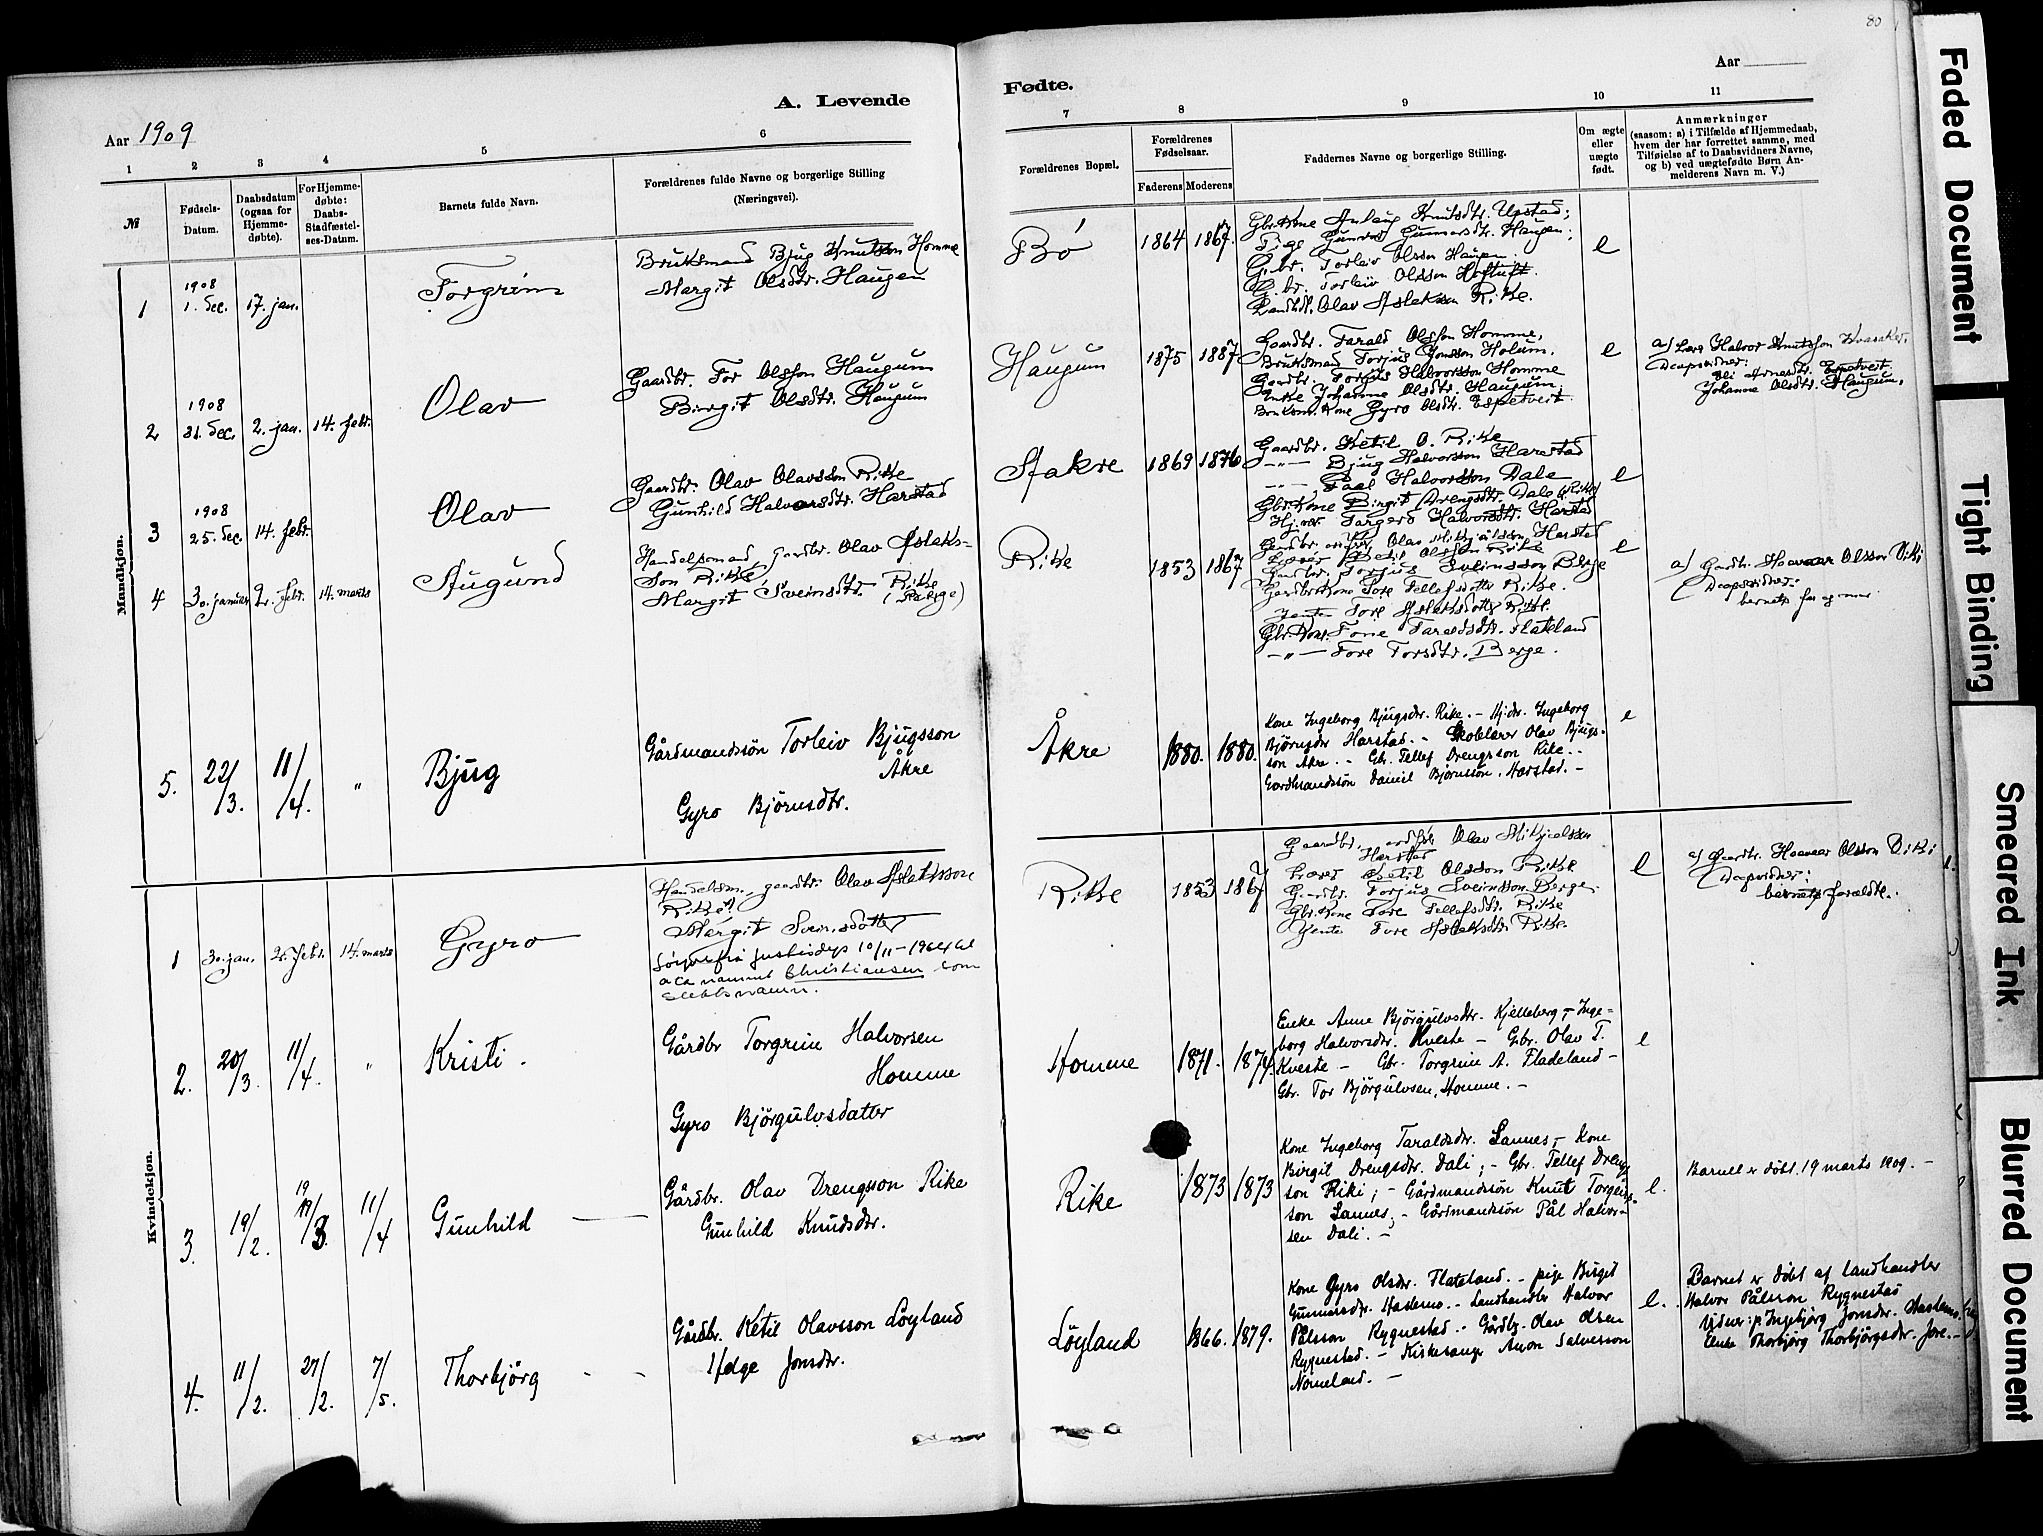 80
A. Levende
Fødte.
Aar 1909
Aar
1
2
3
4
5
6
7
8
9
10
11
№
Fødsels-
Datum.
Daabsdatum
(ogsaa for
Hjemme-
døbte).
For Hjemme-
døbte:
Daabs-
Stadfæstel-
ses-Datum.
Barnets fulde Navn.
Forældrenes fulde Navne og borgerlige Stilling
(Næringsvei).
Forældrenes Bopæl.
Forældrenes
Fødselsaar.
Faderens
Moderens
Faddernes Navne og borgerlige Stilling.
Om ægte
eller
uægte
født.
Anmærkninger
(saasom: a) i Tilfælde af Hjemmedaab,
hvem der har forrettet samme, med
Tilføielse af to Daabsvidners Navne,
og b) ved uægtefødte Børn An-
melderens Navn m. V.)
Mandkjøn.
1
1908
1. Dec.
17. jan.
Torgrim
Bruksmand Bjug Knutson Homme
Margit Olsdtr. Haugen
Bø
1864
1867.
Gbr. Kone Anlaug Knutsdtr. Upstad;
Pige Gunvor Gunnarsdtr. Haugen;
G.br. Torleiv Olsson Haugen.
G.br. Torleiv Olsson Hoftuft.
Landhdl. Olav Aslakson Rike.
e
2
1908
31. Dec.
2. jan.
14. febr.
Olav
Gaardbr. Tor Olsson Haugum
Birgit Olsdtr. Haugum
Haugum
1875
1887
Gaardbr. Tarald Olsson Homme,
Bruksmad Torjus Jonsson Holum.
Gardbr. Torjus Halvorsson Homme
Enke Johanne Olsdtr. Haugum;
Bruksm. Kone Gyro Olsdtr. Espetveit
e
a) Lær. Halvor Knutsson
Daapsvidner:
Arnesdtr. Espetveit
Johanne Olsdtr. Haugum.
3
1908
25. Dec.
14. febr.
Olav
Gaardbr. Olav Olavsson Rike
Gunhild Halvorsdtr. Harstad
Aakre
1869
1876
Gaardbr. Ketil O. Rike
-"- Bjug Halvorsson Harstad
-"- Paal Halvorsson Dale
Gbr. Kone Birgit Drengsdtr. Dale (Rike)
Hj.vær. Targerd Halvorsdtr. Harstad
e
4
30. januar
2. febr.
14. marts
Augund
Handelsmad, gardbr. Olav Aslaks-
son Rike
Margit Sveinsdtr. Rike
(Berge)
Rike
1853
1867
Gardbr. Olav Mikjalsson, Harstad
Lærer Ketil Olsson Rike
Gardbr. Torjus Sveinsson Berge
Gardbr Kone Tore Tellefsdotter Rike.
Jente Tore Aslaksdotter Rike.
Gbr. Kone Tone Taraldsdtr. Flateland
-"- Tore Torsdtr. Berge.
e
a) Gardbr. Hoavaar Olsson Viki
Daapsvidner:
barnets far og mor.
5.
22/3.
11/4.
"
Bjug
Gårdmandssön Torleiv Bjugsson
Åkre
Gyro Björnsdtr.
Åkre
1880.
1880.
Kone Ingeborg Bjugsdtr. Rike. – Hj.dr. Ingeborg
Björnsdr Harstad. – Skolelærer Olav Bjugs-
son Åkre. – Gbr. Tellef Drengsson Rike. –
Gardmandssön Daniel Björnsson, Harstad. –
e
Kvindekjøn.
1
30. jan.
2. febr.
14. marts
Gyro
Handelsm., gaardbr. Olav Aslaksson
Rike
Margit Sveinsdotter
justisdep 10/11-1964 til
å ta namnet Christiansen som
slektsnamn.
Rike
1853
1867
Gaardbr. Olav Mikjaelsson
Harstad
Lærer Ketil Olsson Rike
Gardbr. Torjus Sveinsson Berge.
Gbr. Kone Tore Tellefsdtr. Rike
Jente Tore Aslaksdtr. Rike.
e
a) Gardbr. Hoavaar Olsson Viki
Daapsvidner:
barnets foraeldre.
2.
20/3.
11/4.
"
Kristi.
Gårdbr Torgrim Halvorsen
Homme
Gyro Björgulvsdatter
Homme
1871.
1874.
Enke Anne Björgulvsdtr. Kjelleberg, – Inge-
borg Halvorsdtr. Kveste – Gbr. Olav T.
Kveste – Gbr. Torgrim A. Fladeland –
Gbr. Tor Björgulvsen, Homme. –
e
3.
19/2.
19
/3.
11/4
Gunhild
Gårdbr. Olav Drengsson Rike
Gunhild Knudsdtr.
Rike
1873
1873
Kone Ingeborg Taraldsdtr. Sannes, – Kone
Birgit Drengsdtr. Dali; – Gbr. Tellef Dreng-
son Riki; – Gårdmandssön Knut Torgeirs-
son Sannes; – Gårdmandssön Pål Halvor-
sen Dali. –
e.
Barnet er döbt 19 marts 1909. –
4.
11/2.
27/2.
7/5.
Thorbjörg
Gårdbr. Ketil Olavsson Löyland
Helge Jonsdtr.
Löyland
1866.
1879.
Kone Gyro Olsdtr. Flateland. – pige Birgit
Gunnarsdtr. Haslemo. – Landhandler Halvor
Pålsson Rygnestad. – Gårdbr. Olav Olsen
Rygnestad. – Kirkesanger Anon Salvesson
Nomeland. –
e.
Barnet er döbt af landhandler
Halvor Pålsson Rygnestad
Vidner: p. Ingebjörg Jonsdtr. Haslemo
Enke Thorbjörg Thorbjörgsdtr. Jore. –
Faded Document
Tight Binding
Smeared Ink
Blurred Document